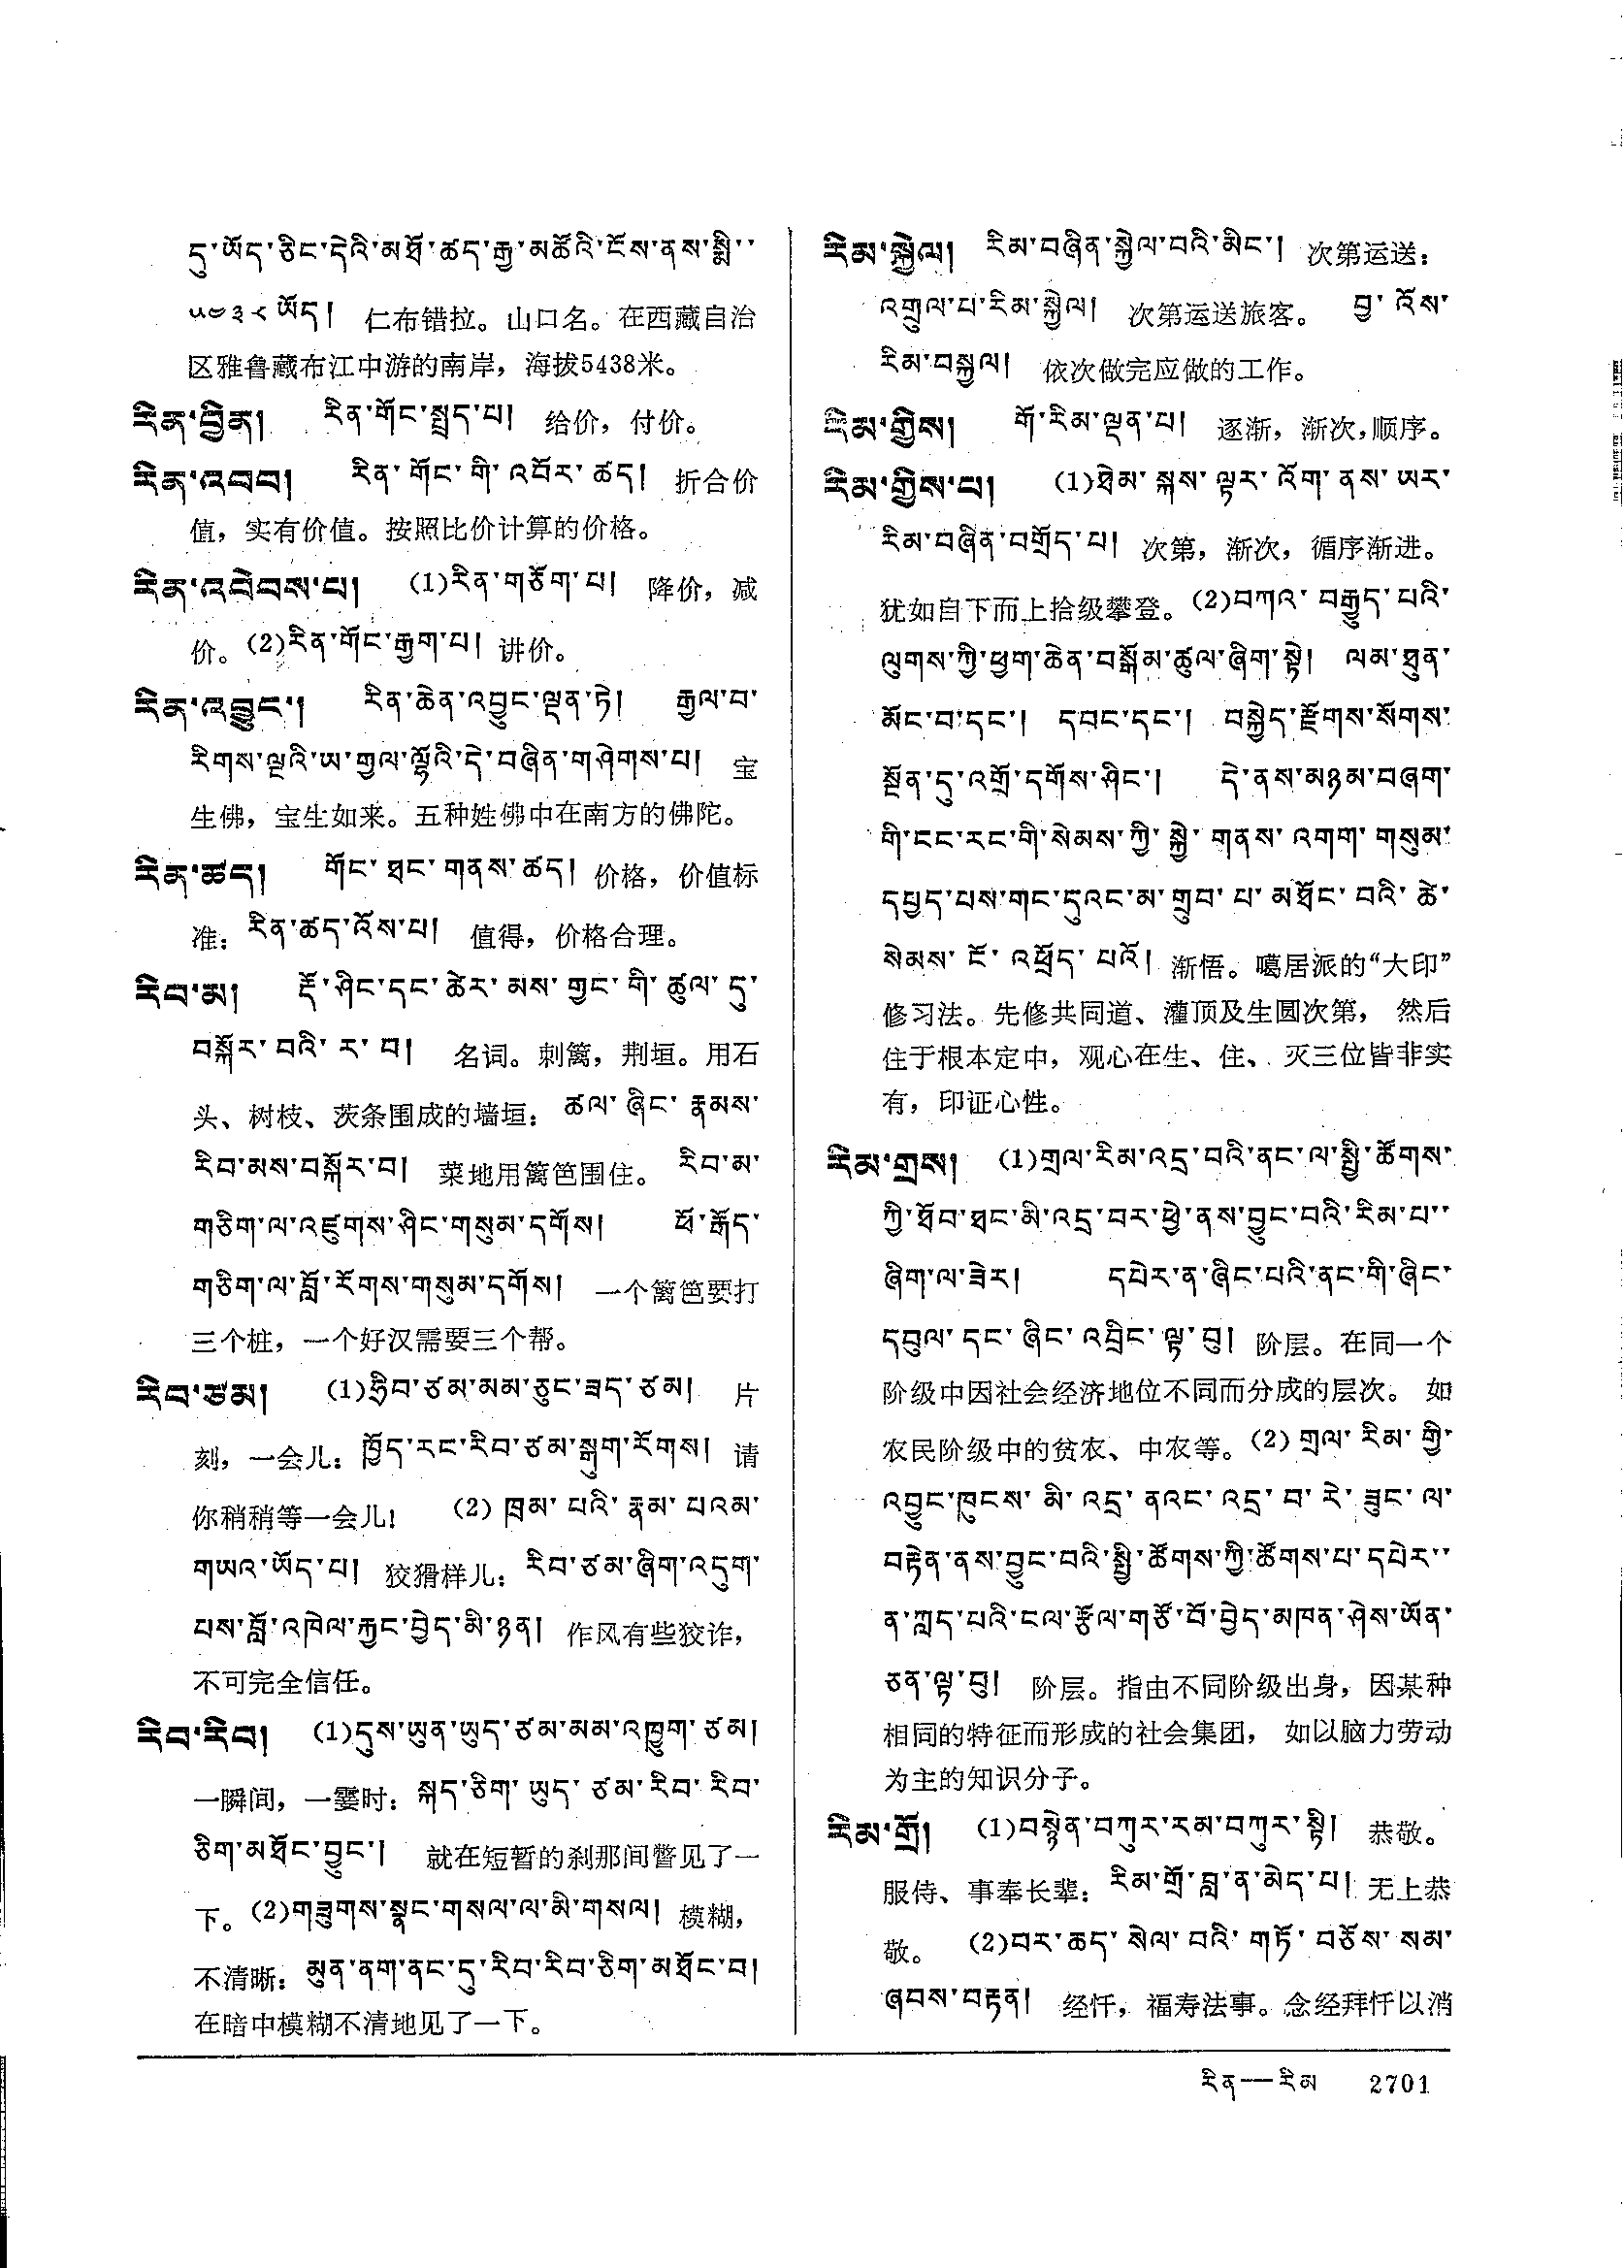 དུ་ཡོད་ཅིང་དེའི་མཐོ་ཚད་རྒྱ་མཚོའི་ངོས་ནས་སྨི་་
༥༤༣༨ ཡོད། 仁布错拉。山口名。在西藏自治
区雅鲁藏布江中游的南岸，海拔5438米。
རིན་བྱིན། རིན་གོང་སྤྲད་པ། 给价，付价。
རིན་འབབ། རིན་གོང་གི་འབོར་ཚད། 折合价
值，实有价值。按照比价计算的价格。
རིན་འབེབས་པ། (1)རིན་གཅོག་པ། 降价，减
价。(2)རིན་གོང་རྒྱག་པ། 讲价。
རིན་འབྱུང་། རིན་ཆེན་འབྱུང་ལྡན་ཏེ། རྒྱལ་བ་
རིགས་ལྔའི་ཡ་གྱལ་ལྷོའི་དེ་བཞིན་གཤེགས་པ། 宝
生佛，宝生如来。五种姓佛中在南方的佛陀。
རིན་ཚད། གོང་ཐང་གནས་ཚད། 价格，价值标
准：རིན་ཚད་འོས་པ། 值得，价格合理。
རིབ་མ། རྡོ་ཤིང་དང་ཚེར་མས་གྱང་གི་ཚུལ་དུ་
བསྐོར་བའི་ར་བ། 名词。刺篱，荆垣。用石
头、树枝、茨条围成的墙垣：ཚལ་ཞིང་རྣམས་
རིབ་མས་བསྐོར་བ། 菜地用篱笆围住。 རིབ་མ་
གཅིག་ལ་འཛུགས་ཤིང་གསུམ་དགོས། ཕོ་རྒོད་
གཅིག་ལ་བློ་རོགས་གསུམ་དགོས། 一个篱笆要打
三个桩，一个好汉需要三个帮。
རིབ་ཙམ། (1)ཧྲིབ་ཙམ་མམ་ཅུང་ཟད་ཙམ། 片
刻，一会儿：ཁྱོད་རང་རིབ་ཙམ་སྒུག་རོགས། 请
你稍稍等一会儿! (2) ཁྲམ་པའི་རྣམ་པའམ་
གཡའ་ཡོད་པ། 狡猾样儿：རིབ་ཙམ་ཞིག་འདུག་
པས་བློ་འཁེལ་རྐྱང་བྱེད་མི་ཉན། 作风有些狡诈，
不可完全信任。
རིབ་རིབ། (1)དུས་ཡུན་ཡུད་ཙམ་མམ་འཁྱུག་ཙམ།
一瞬间，一霎时：སྐད་ཅིག་ཡུད་ཙམ་རིབ་རིབ་
ཅིག་མཐོང་བྱུང་། 就在短暂的刹那间瞥见了一
下。(2)གཟུགས་སྣང་གསལ་ལ་མི་གསལ། 模糊，
不清晰：མུན་ནག་ནང་དུ་རིབ་རིབ་ཅིག་མཐོང་བ།
在暗中模糊不清地见了一下。
རིམ་སྐྱེལ། རིམ་བཞིན་སྐྱེལ་བའི་མིང་། 次第运送：
འགྲུལ་པ་རིམ་སྐྱེལ། 次第运送旅客。 བྱ་འོས་
རིམ་བསྐྱལ། 依次做完应做的工作。
རིམ་གྱིས། གོ་རིམ་ལྡན་པ། 逐渐，渐次，顺序。
རིམ་གྱིས་པ། (1)ཐེམ་སྐས་ལྟར་འོག་ནས་ཡར་
རིམ་བཞིན་བགྲོད་པ། 次第，渐次，循序渐进。
犹如自下而上拾级攀登。(2)བཀའ་བརྒྱུད་པའི་
ལུགས་ཀྱི་ཕྱག་ཆེན་བསྒོམ་ཚུལ་ཞིག་སྟེ། ལམ་ཐུན་
མོང་བ་དང་། དབང་དང་། བསྐྱེད་རྫོགས་སོགས་
སྔོན་དུ་འགྲོ་དགོས་ཤིང་། དེ་ནས་མཉམ་བཞག་
གི་ངང་རང་གི་སེམས་ཀྱི་སྐྱེ་གནས་འགག་གསུམ་
དཔྱད་པས་གང་དུའང་མ་གྲུབ་པ་མཐོང་བའི་ཚེ་
སེམས་ངོ་འཕྲོད་པའོ། 渐悟。噶居派的“大印”
修习法。先修共同道、灌顶及生圆次第， 然后
住于根本定中，观心在生、住、灭三位皆非实
有，印证心性。
རིམ་གྲས། (1)གྲལ་རིམ་འདྲ་བའི་ནང་ལ་སྤྱི་ཚོགས་
ཀྱི་ཐོབ་ཐང་མི་འདྲ་བར་ཕྱེ་ནས་བྱུང་བའི་རིམ་པ་་
ཞིག་ལ་ཟེར། དཔེར་ན་ཞིང་པའི་ནང་གི་ཞིང་
དབུལ་དང་ཞིང་འབྲིང་ལྟ་བུ། 阶层。在同一个
阶级中因社会经济地位不同而分成的层次。 如
农民阶级中的贫农、中农等。(2) གྲལ་རིམ་གྱི་
འབྱུང་ཁུངས་མི་འདྲ་ནའང་འདྲ་བ་རེ་ཟུང་ལ་
བརྟེན་ནས་བྱུང་བའི་སྤྱི་ཚོགས་ཀྱི་ཚོགས་པ་དཔེར་་
ན་ཀླད་པའི་ངལ་རྩོལ་གཙོ་བོ་བྱེད་མཁན་ཤེས་ཡོན་
ཅན་ལྟ་བུ། 阶层。指由不同阶级出身，因某种
相同的特征而形成的社会集团， 如以脑力劳动
为主的知识分子。
རིམ་གྲོ། (1)བསྙེན་བཀུར་རམ་བཀུར་སྟི། 恭敬。
服侍、事奉长辈：རིམ་གྲོ་བླ་ན་མེད་པ། 无上恭
敬。 (2)བར་ཆད་སེལ་བའི་གཏོ་བཅོས་སམ་
ཞབས་བརྟན། 经忏，福寿法事。念经拜忏以消
རིན—རིམ 2701